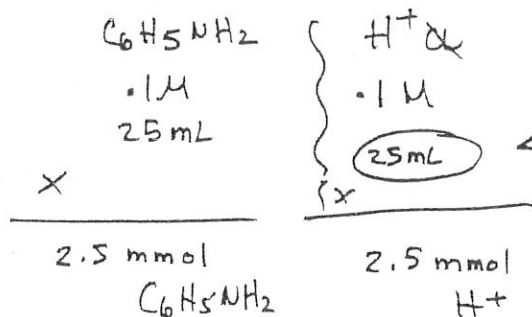 C6H5NH2
.1M
25mL
X
2.5 mmol
C6H5NH2
H+
.1 M
25mL
x
2.5 mmol
H+